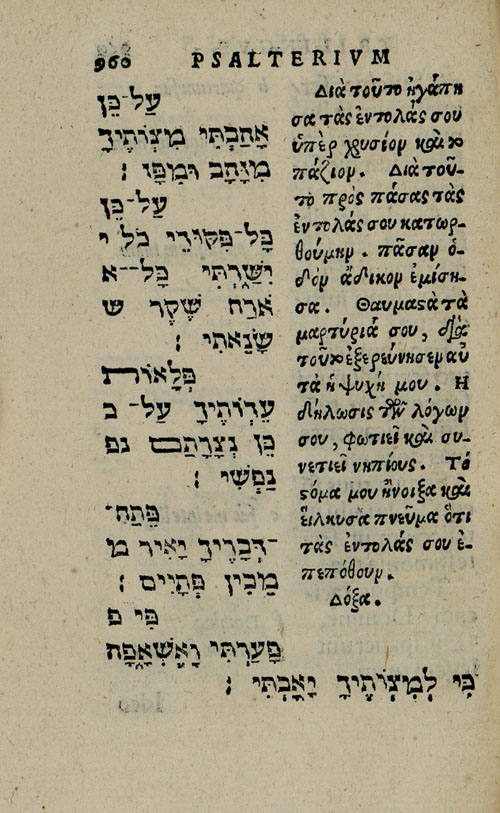 960 PSALTERIVM
עַל־כֵּן
אָהַבְתִּי מִצְוֹתֶיךָ
מִזָּהָב וּמִפָּז׃
עַל־כֵּן
כָּל־פִּקּוּדֵי כֹל י
יִשָּׁרְתִּי כָּל־־א
אֹרַח שֶׁקֶר ש
שָׂנֵאתִי׃
פְּלָאוֹת
עֵדְוֹתֶיךָ עַל־כ
כֵּן נְצָרָתַם נפ
נַפְשִׁי׃
פֵּתַח־
־דְּבָרֶיךָ יָאִיר מ
מֵבִין פְּתָיִים׃
פִּי פ
פָּעַרְתִּי וָאֶשְׁאָפָה
כִּי לְמִצְוֹתֶיךָ יָאָבְתִּי׃
Διὰ τοῦτο ἠγάπη
σα τὰς ἐντολάς σου
ὑπὲρ χρυσίον καὶ το
πάζιον. Διὰ τοῦ-
το πρὸς πάσας τὰς
ἐντολάς σου κατωρ-
θούμην. πᾶσαν ὁ-
δὸν ἄδικον ἐμίση-
σα. Θαυμαςὰ τὰ
μαρτύριά σου, διὰ
τοῦτο ἐξερεύνησεν αὐ
τὰ ἡ ψυχή μου. Η
δήλωσις τῶν λόγων
σου, φωτιεῖ καὶ συ-
νετιεῖ νηπίους. Τό
ςόμα μου ἤνοιξα καὶ
εἵλκυσα πνεῦμα ὅτι
τὰς ἐντολάς σου ἐ-
πεπόθουν.
Δόξα.